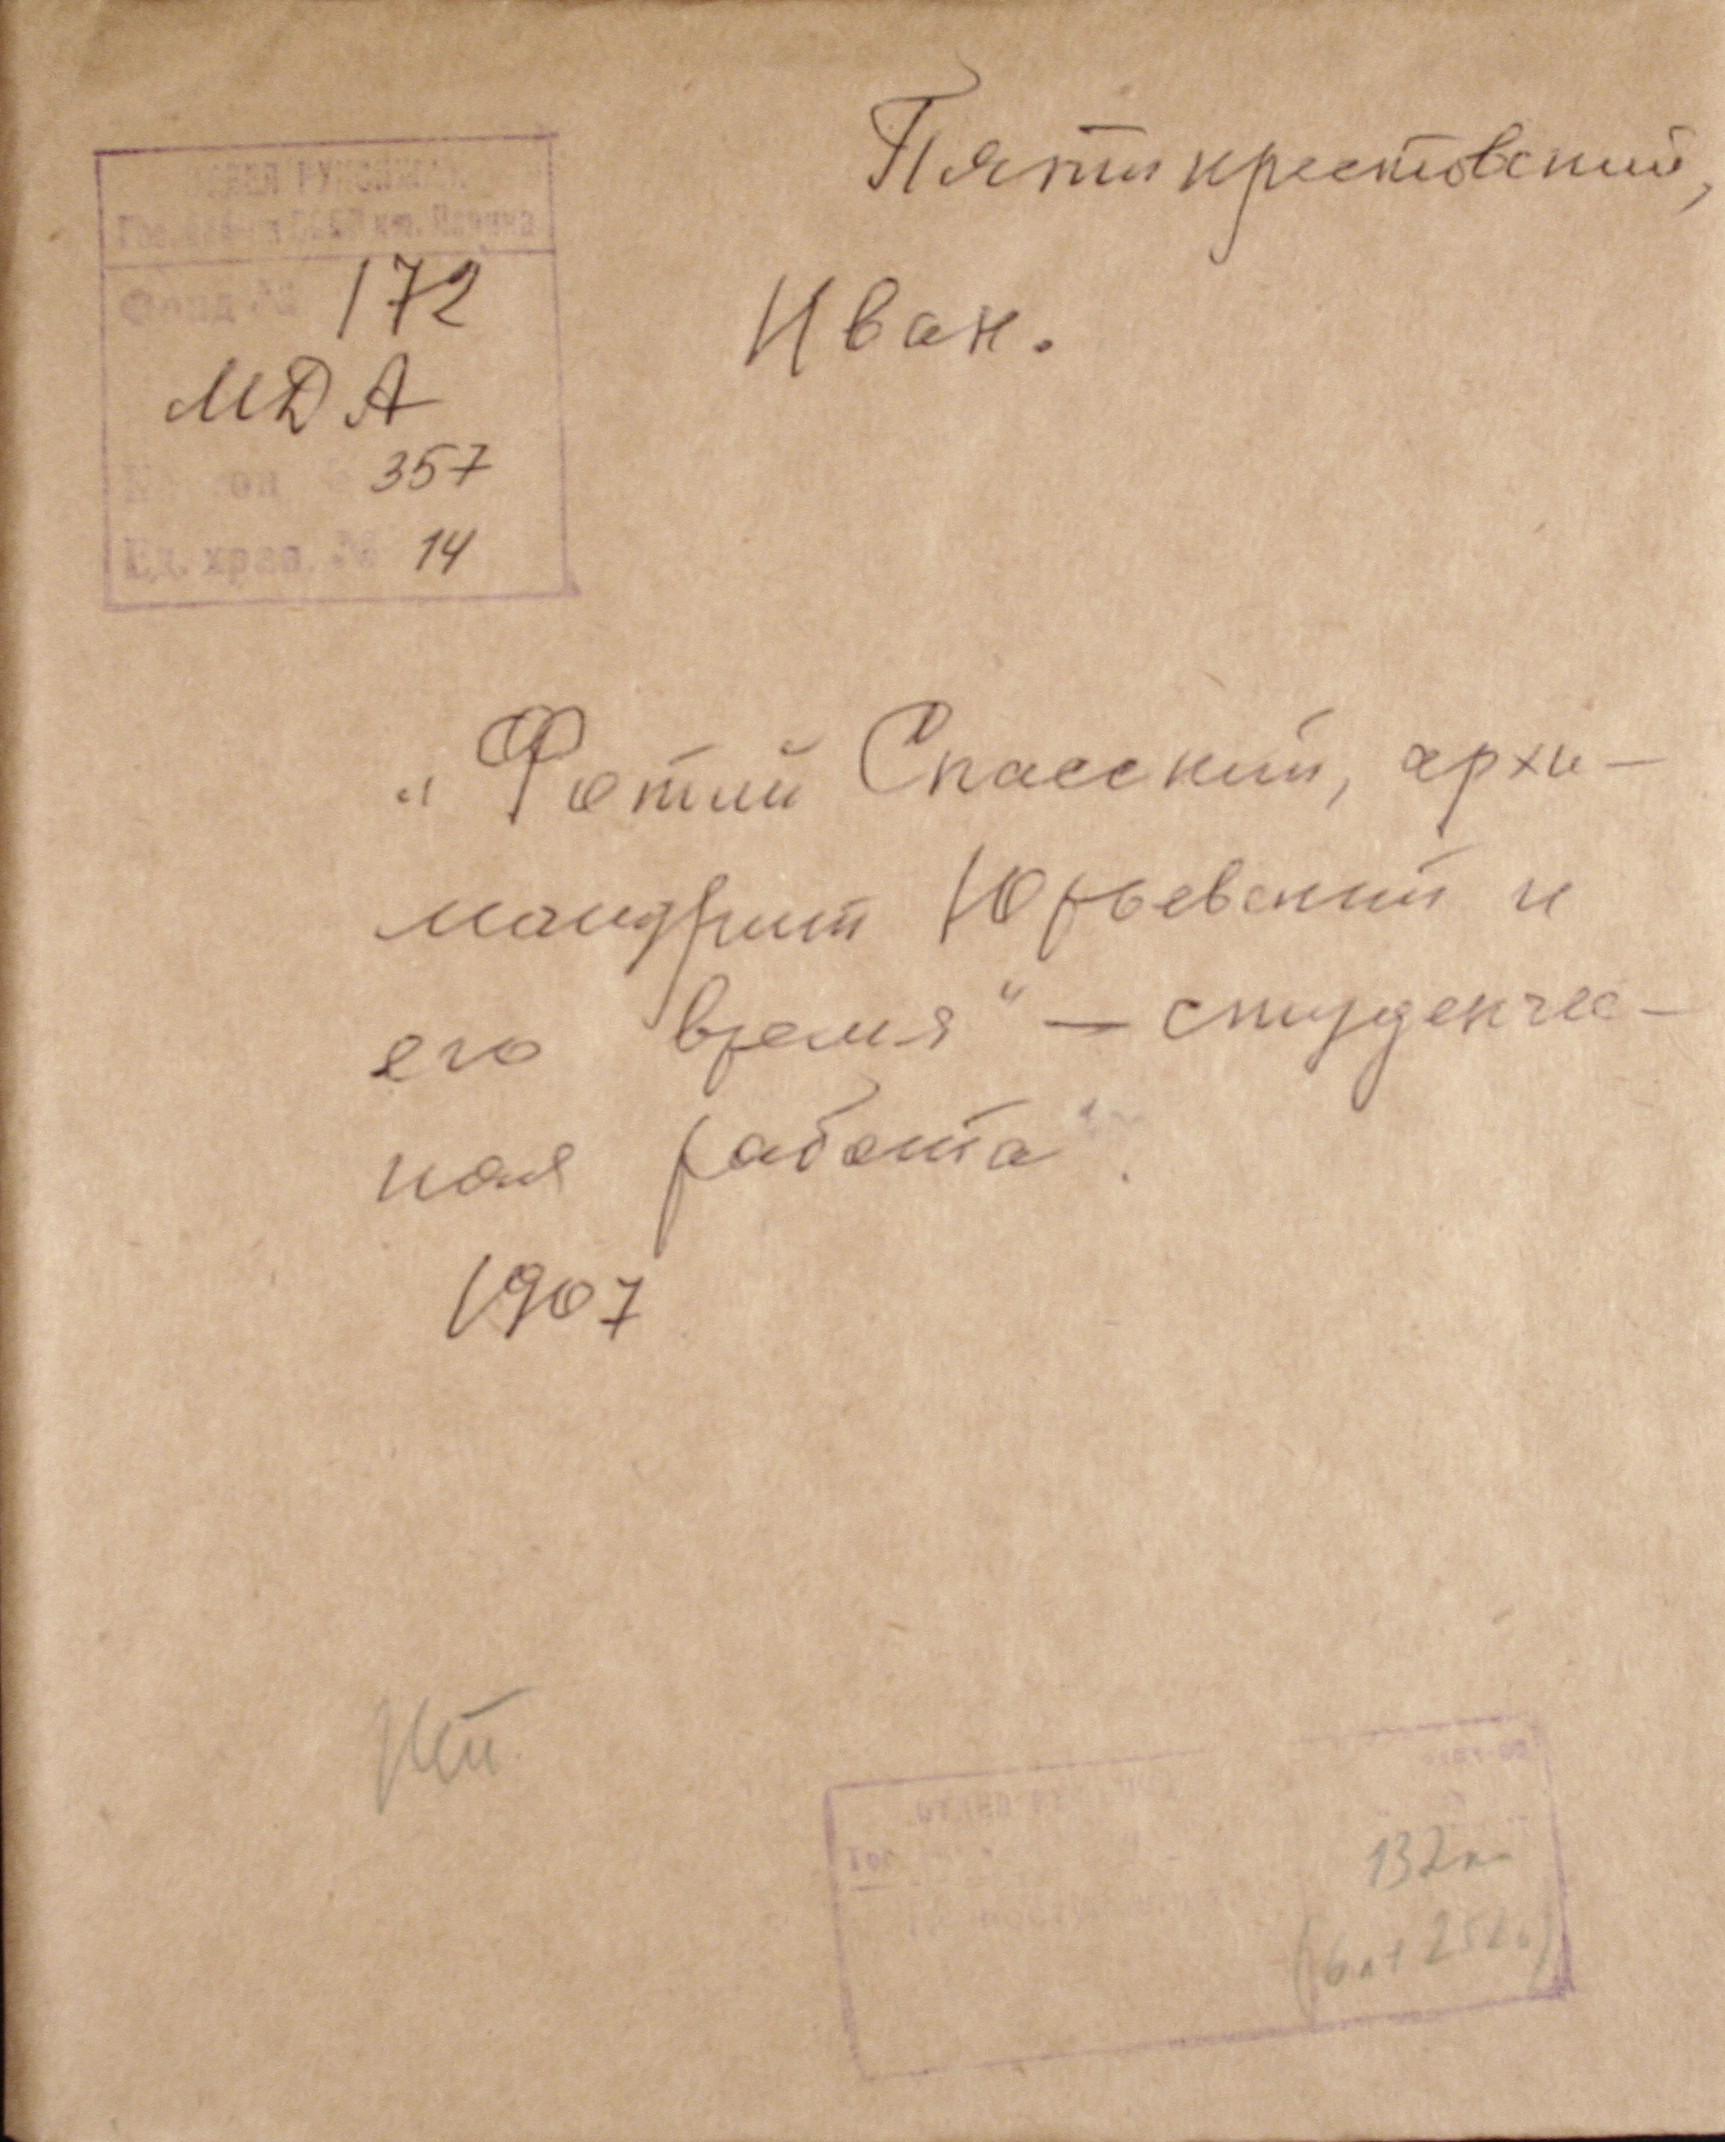 Пятикрестовский,
Иван.
ОТДЕЛ РУКОПИСЕЙ
Гос. СССР им. Ленина
Фонд № 172
МДА
357
Ед. хран. № 14
„Фотий Спасский, архи-
мандрит Юрьевский и
его время" — студенчес-
кая работа".
1907
132 л.